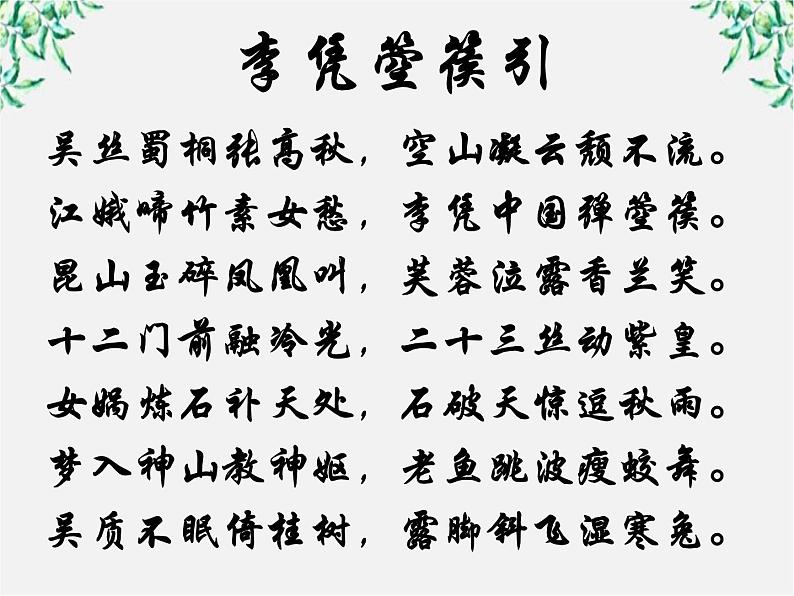 李凭箜篌引
吴丝蜀桐张高秋，空山凝云颓不流。
江娥啼竹素女愁，李凭中国弹箜篌。
昆山玉碎凤凰叫，芙蓉泣露香兰笑。
十二门前融冷光，二十三丝动紫皇。
女娲炼石补天处，石破天惊逗秋雨。
梦入神山教神妪，老鱼跳波瘦蛟舞。
吴质不眠倚桂树，露脚斜飞湿寒兔。